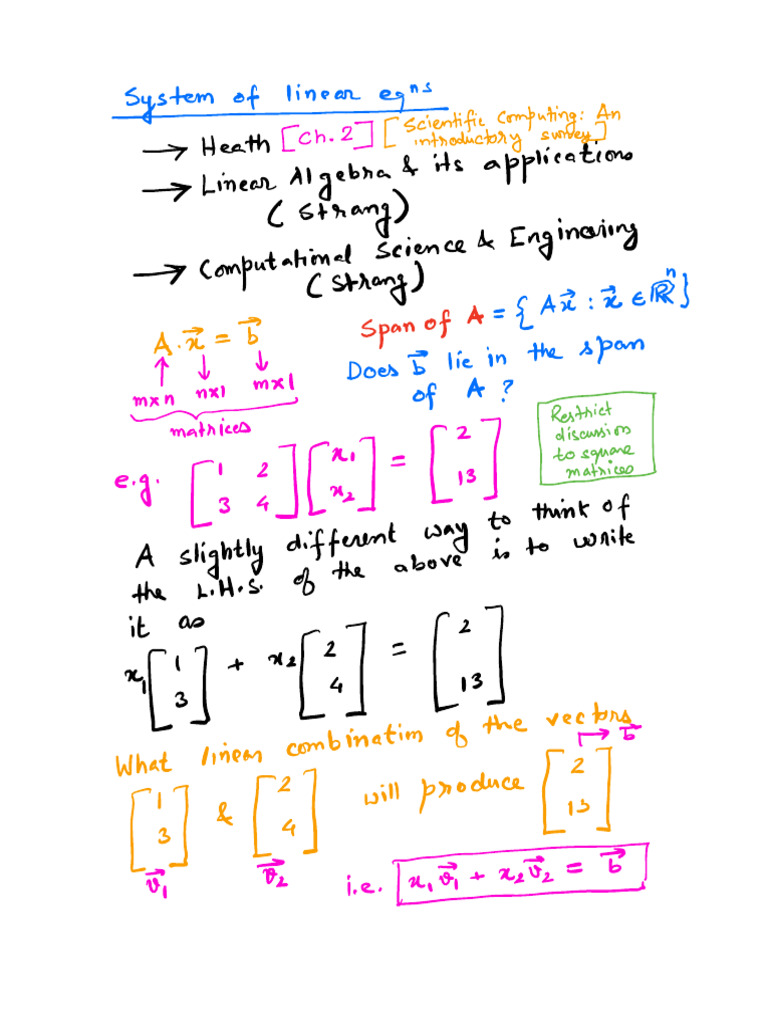 System of linear eqⁿˢ
→ Heath [Ch. 2] [Scientific Computing: An introductory survey]
→ Linear Algebra & its applications
(Strang)
→ Computational Science & Engineering
(Strang)
A·x⃗ = b⃗
↑ ↓ ↓
m×n n×1 m×1
matrices
Span of A = { Ax⃗ : x⃗ ∈ ℝⁿ}
Does b⃗ lie in the span
of A ?
Restrict
discussion
to square
matrices
e.g. [1 2; 3 4] [x₁; x₂] = [2; 13]
A slightly different way to think of
the L.H.S. of the above is to write
it as
x₁ [1; 3] + x₂ [2; 4] = [2; 13]
What linear combination of the vectors
[1; 3] & [2; 4] will produce [2; 13] → b⃗
v⃗₁ v⃗₂
i.e. x₁v⃗₁ + x₂v⃗₂ = b⃗